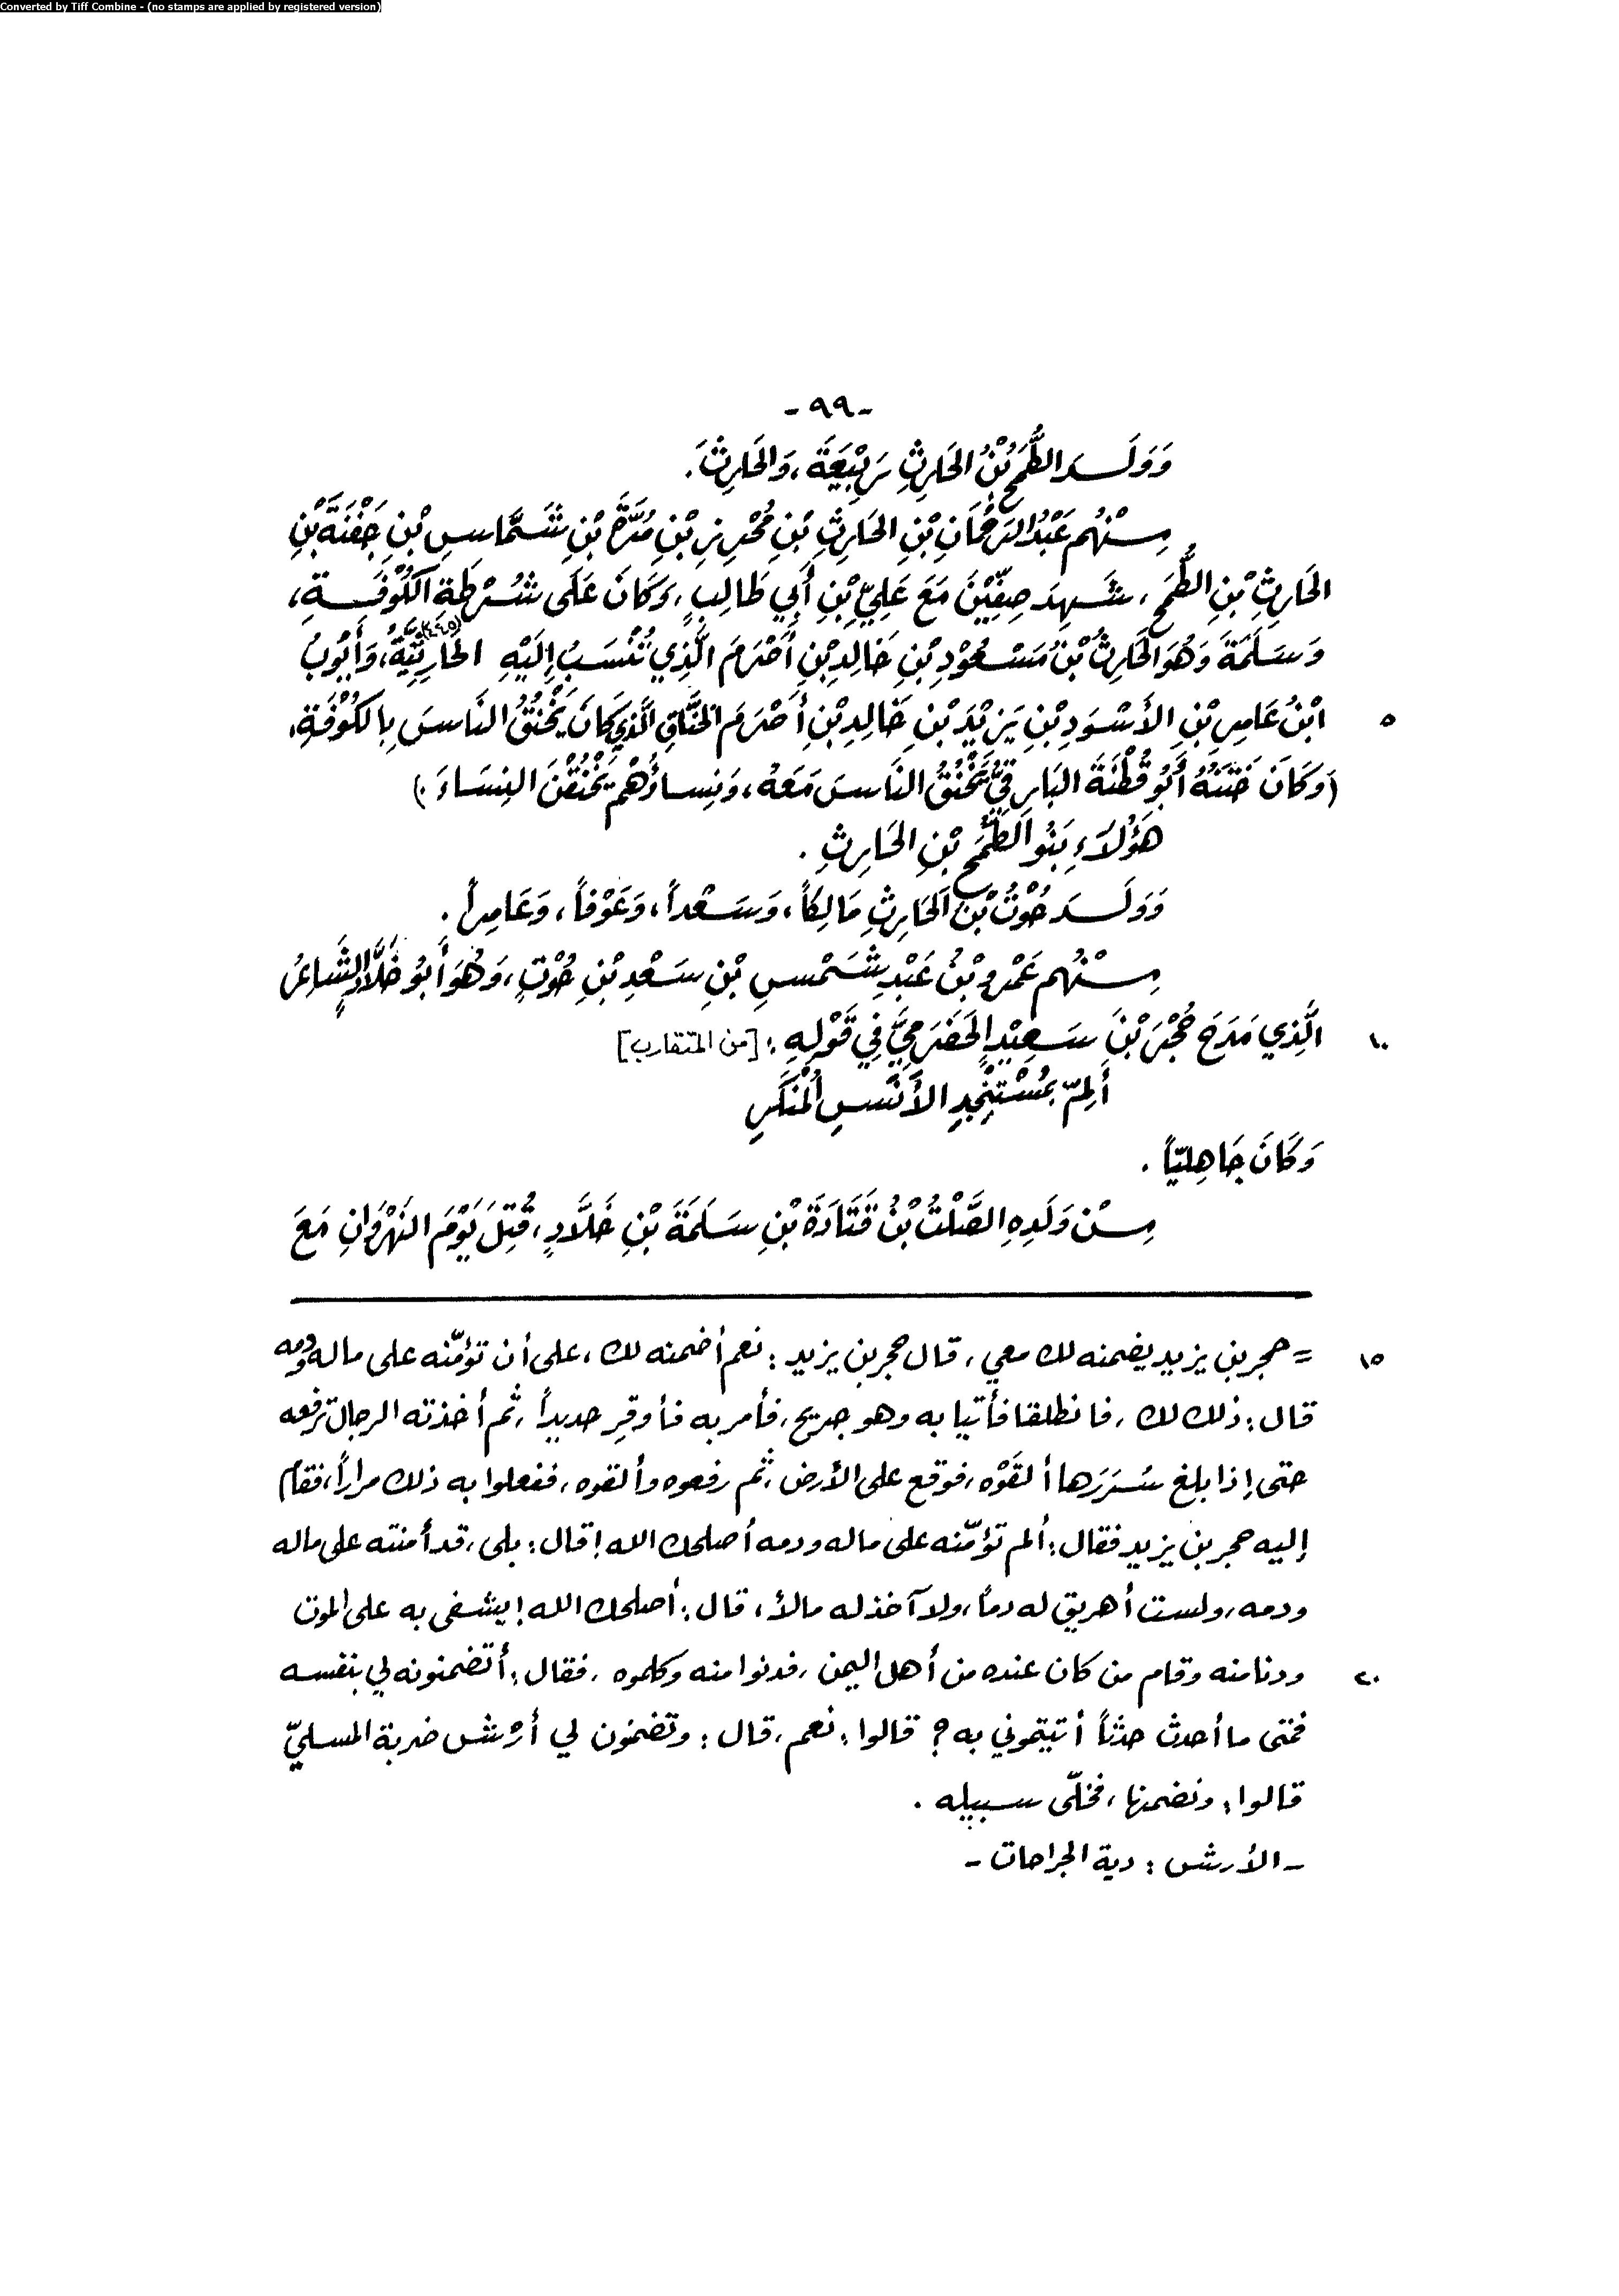 Converted by Tiff Combine - (no stamps are applied by registered version)
- ٩٩ -
وَوَلَدَ الطُّمَحُ بْنُ الحَارِثِ رَبِيْعَةَ، وَالحَارِثَ.
مِنْهُم عَبْدُ الرَحْمَانِ بْنِ الحَارِثِ بْنِ مُحْرِزِ بْنِ مُرَّةَ بْنِ شَمَّاسِ بْنِ جَفْنَةَ بْنِ
الحَارِثِ بْنِ الطُّمَحِ، شَهِدَ صِفِّيْنَ مَعَ عَلِيِّ بْنِ أَبِي طَالِبٍ، وَكَانَ عَلَى شُرْطَةِ الكُوْفَةِ،
وَسَلَمَةَ وَهُوَ الحَارِثُ بْنُ مَسْعُوْدِ بْنِ خَالِدِ بْنِ أَصْرَمَ الَّذِي تُنْسَبُ إِلَيْهِ الحَارِثِيَّةُ، وَأَيُّوبُ
٥ ابْنُ عَامِرِ بْنِ الأَسْوَدِ بْنِ يَزِيْدَ بْنِ خَالِدِ بْنِ أَصْرَمَ الخَنَّاقِ الَّذِي كَانَ يَخْنُقُ النَاسَ بِالكُوْفَةِ،
(وَكَانَ خَتَنَهُ أَبُو قُطْنَةَ البَارِقِيُّ يَخْنُقُ النَاسَ مَعَهُ، وَنِسَاؤُهُمْ يَخْنُقْنَ النِسَاءَ.)
هَؤُلَاءِ بَنُو الطُّمَحِ بْنِ الحَارِثِ.
وَوَلَدَ حُوْتُ بْنُ الحَارِثِ مَالِكاً، وَسَعْداً، وَعَوْفاً، وَعَامِراً.
مِنْهُم عَمْرُو بْنُ عَبْدِ شَمْسِ بْنِ سَعْدِ بْنِ حُوْتٍ، وَهُوَ أَبُو خَلَّادٍ الشَّاعِرُ
١٠ الَّذِي مَدَحَ حُجْرَ بْنَ سَعِيْدٍ الحَضْرَمِيَّ فِي قَوْلِهِ: [من المتقارب]
أَلِمّ بِمُسْتَنْجِدِ الأَنَسِ المُنْكَرِ
وَكَانَ جَاهِلِيّاً.
مِنْ وَلَدِهِ الصَّلْتُ بْنُ قَتَادَةَ بْنِ سَلَمَةَ بْنِ خَلَّادٍ، قُتِلَ يَوْمَ النَهْرَوَانِ مَعَ
١٥ = حجر بن يزيد يضمنه لك معي، قال حجر بن يزيد: نعم أضمنه لك، على أن تؤمّنه على ماله ودمه
قال: ذلك لك، فانطلقا فأتيا به وهو جريح، فأمر به فأوقِر حديداً، ثم أخذته الرجال ترفعه
حتى إذا بلغ سُرَرَها ألقَوْه، فوقع على الأرض، ثم رفعوه وألقوه، ففعلوا به ذلك مراراً، فقام
إليه حجر بن يزيد فقال: ألم تؤمّنه على ماله ودمه أصلحك الله! قال: بلى، قد أمنته على ماله
ودمه، ولست أهريق له دماً، ولا آخذ له مالاً، قال: أصلحك الله! يشفى به على الموت
٢٠ ودنا منه وقام من كان عنده من أهل اليمن، فدنوا منه وكلموه، فقال: أتضمنونه لي بنفسه
فمتى ما أحدث حدثاً أتيتموني به؟ قالوا: نعم، قال: وتضمنون لي أرْش ضربة المسليّ
قالوا: ونضمنها، فخلّى سبيله.
- الأرش: دية الجراحات -